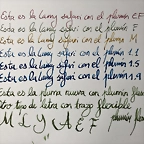 Esta es la Lamy safari con el plumín EF
Esta es la Lamy safari con el plumín F
Esta es la Lamy safari con el plumín M
Esta es la Lamy safari con el plumín 1.1
Esta es la Lamy safari con el plumín 1.5
Esta es la Lamy safari con el plumín 1.9
Esta es la pluma nueva con plumín
Otro tipo de letra con trazo flexible
M L Y A E F